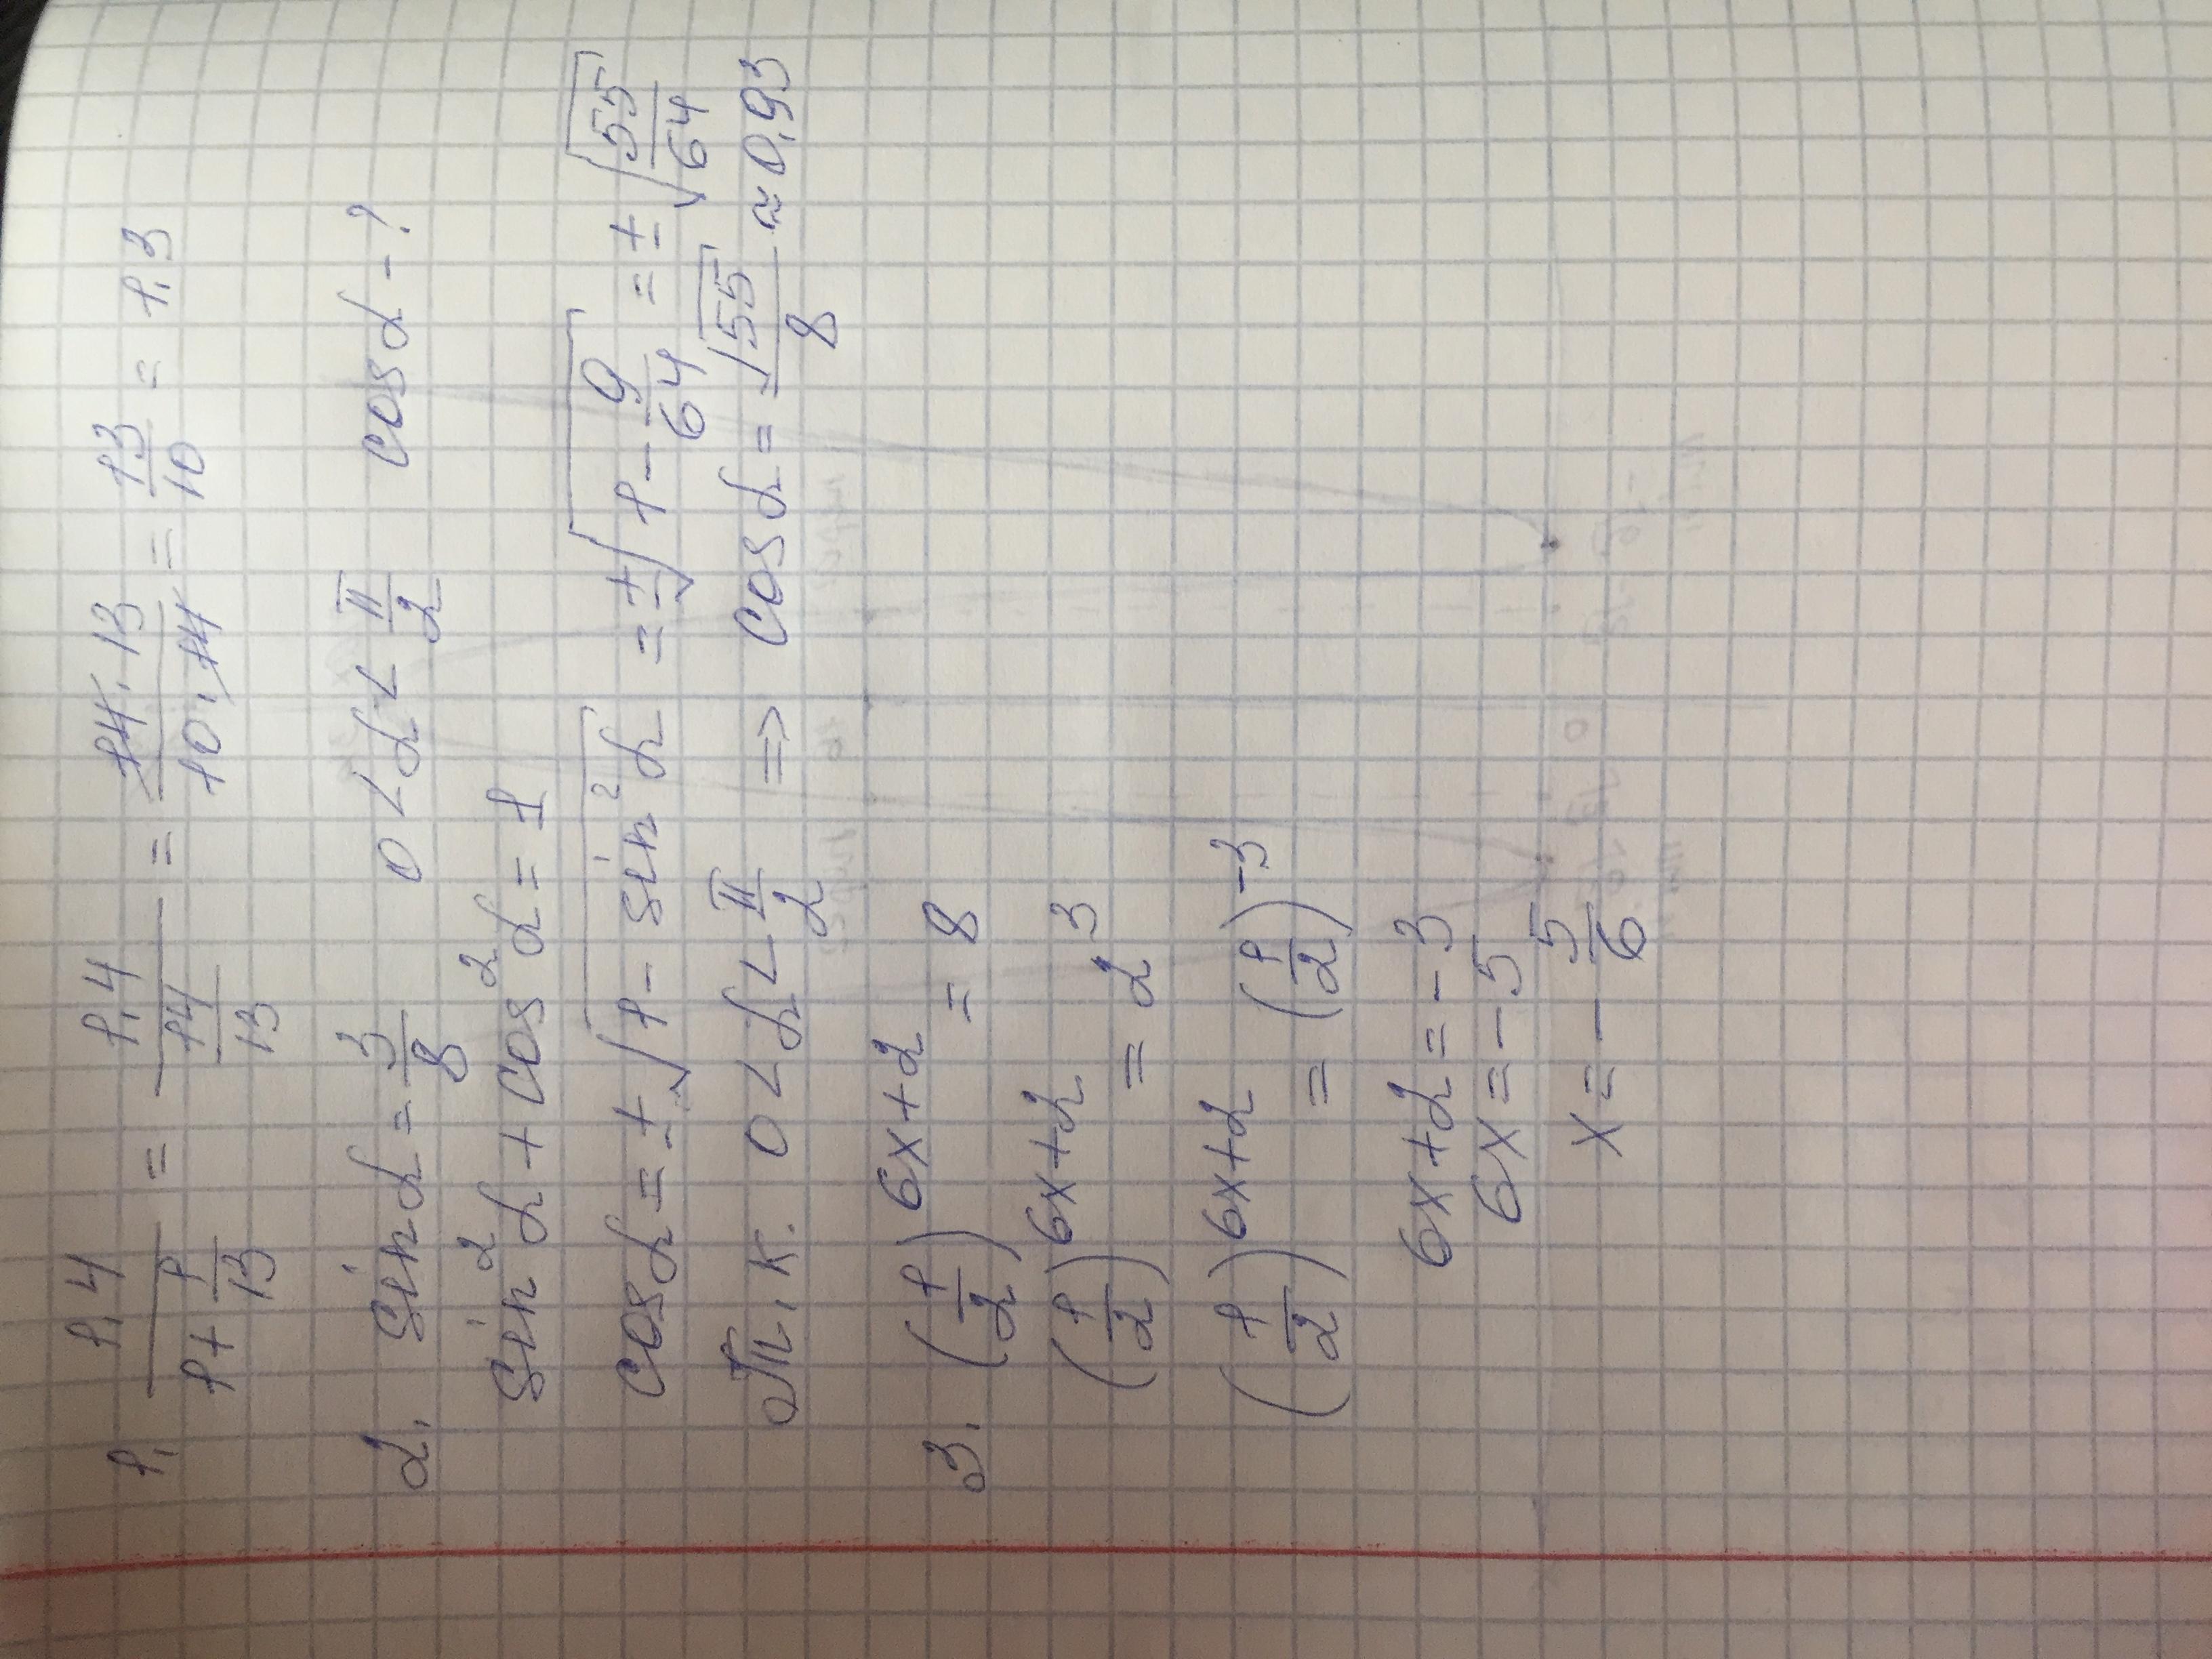 1. 1,4/(1+1/13) = 1,4/(14/13) = 14·13/10·14 = 13/10 = 1,3
2. sin α = 3/8 0 < α < π/2 cos α - ?
sin² α + cos² α = 1
cos α = ±√(1 - sin² α) = ±√(1 - 9/64) = ±√(55/64)
Т.к. 0 < α < π/2 => cos α = √55/8 ≈ 0,93
3. (1/2)^(6x+2) = 8
(1/2)^(6x+2) = 2³
(1/2)^(6x+2) = (1/2)^(-3)
6x+2 = -3
6x = -5
x = - 5/6